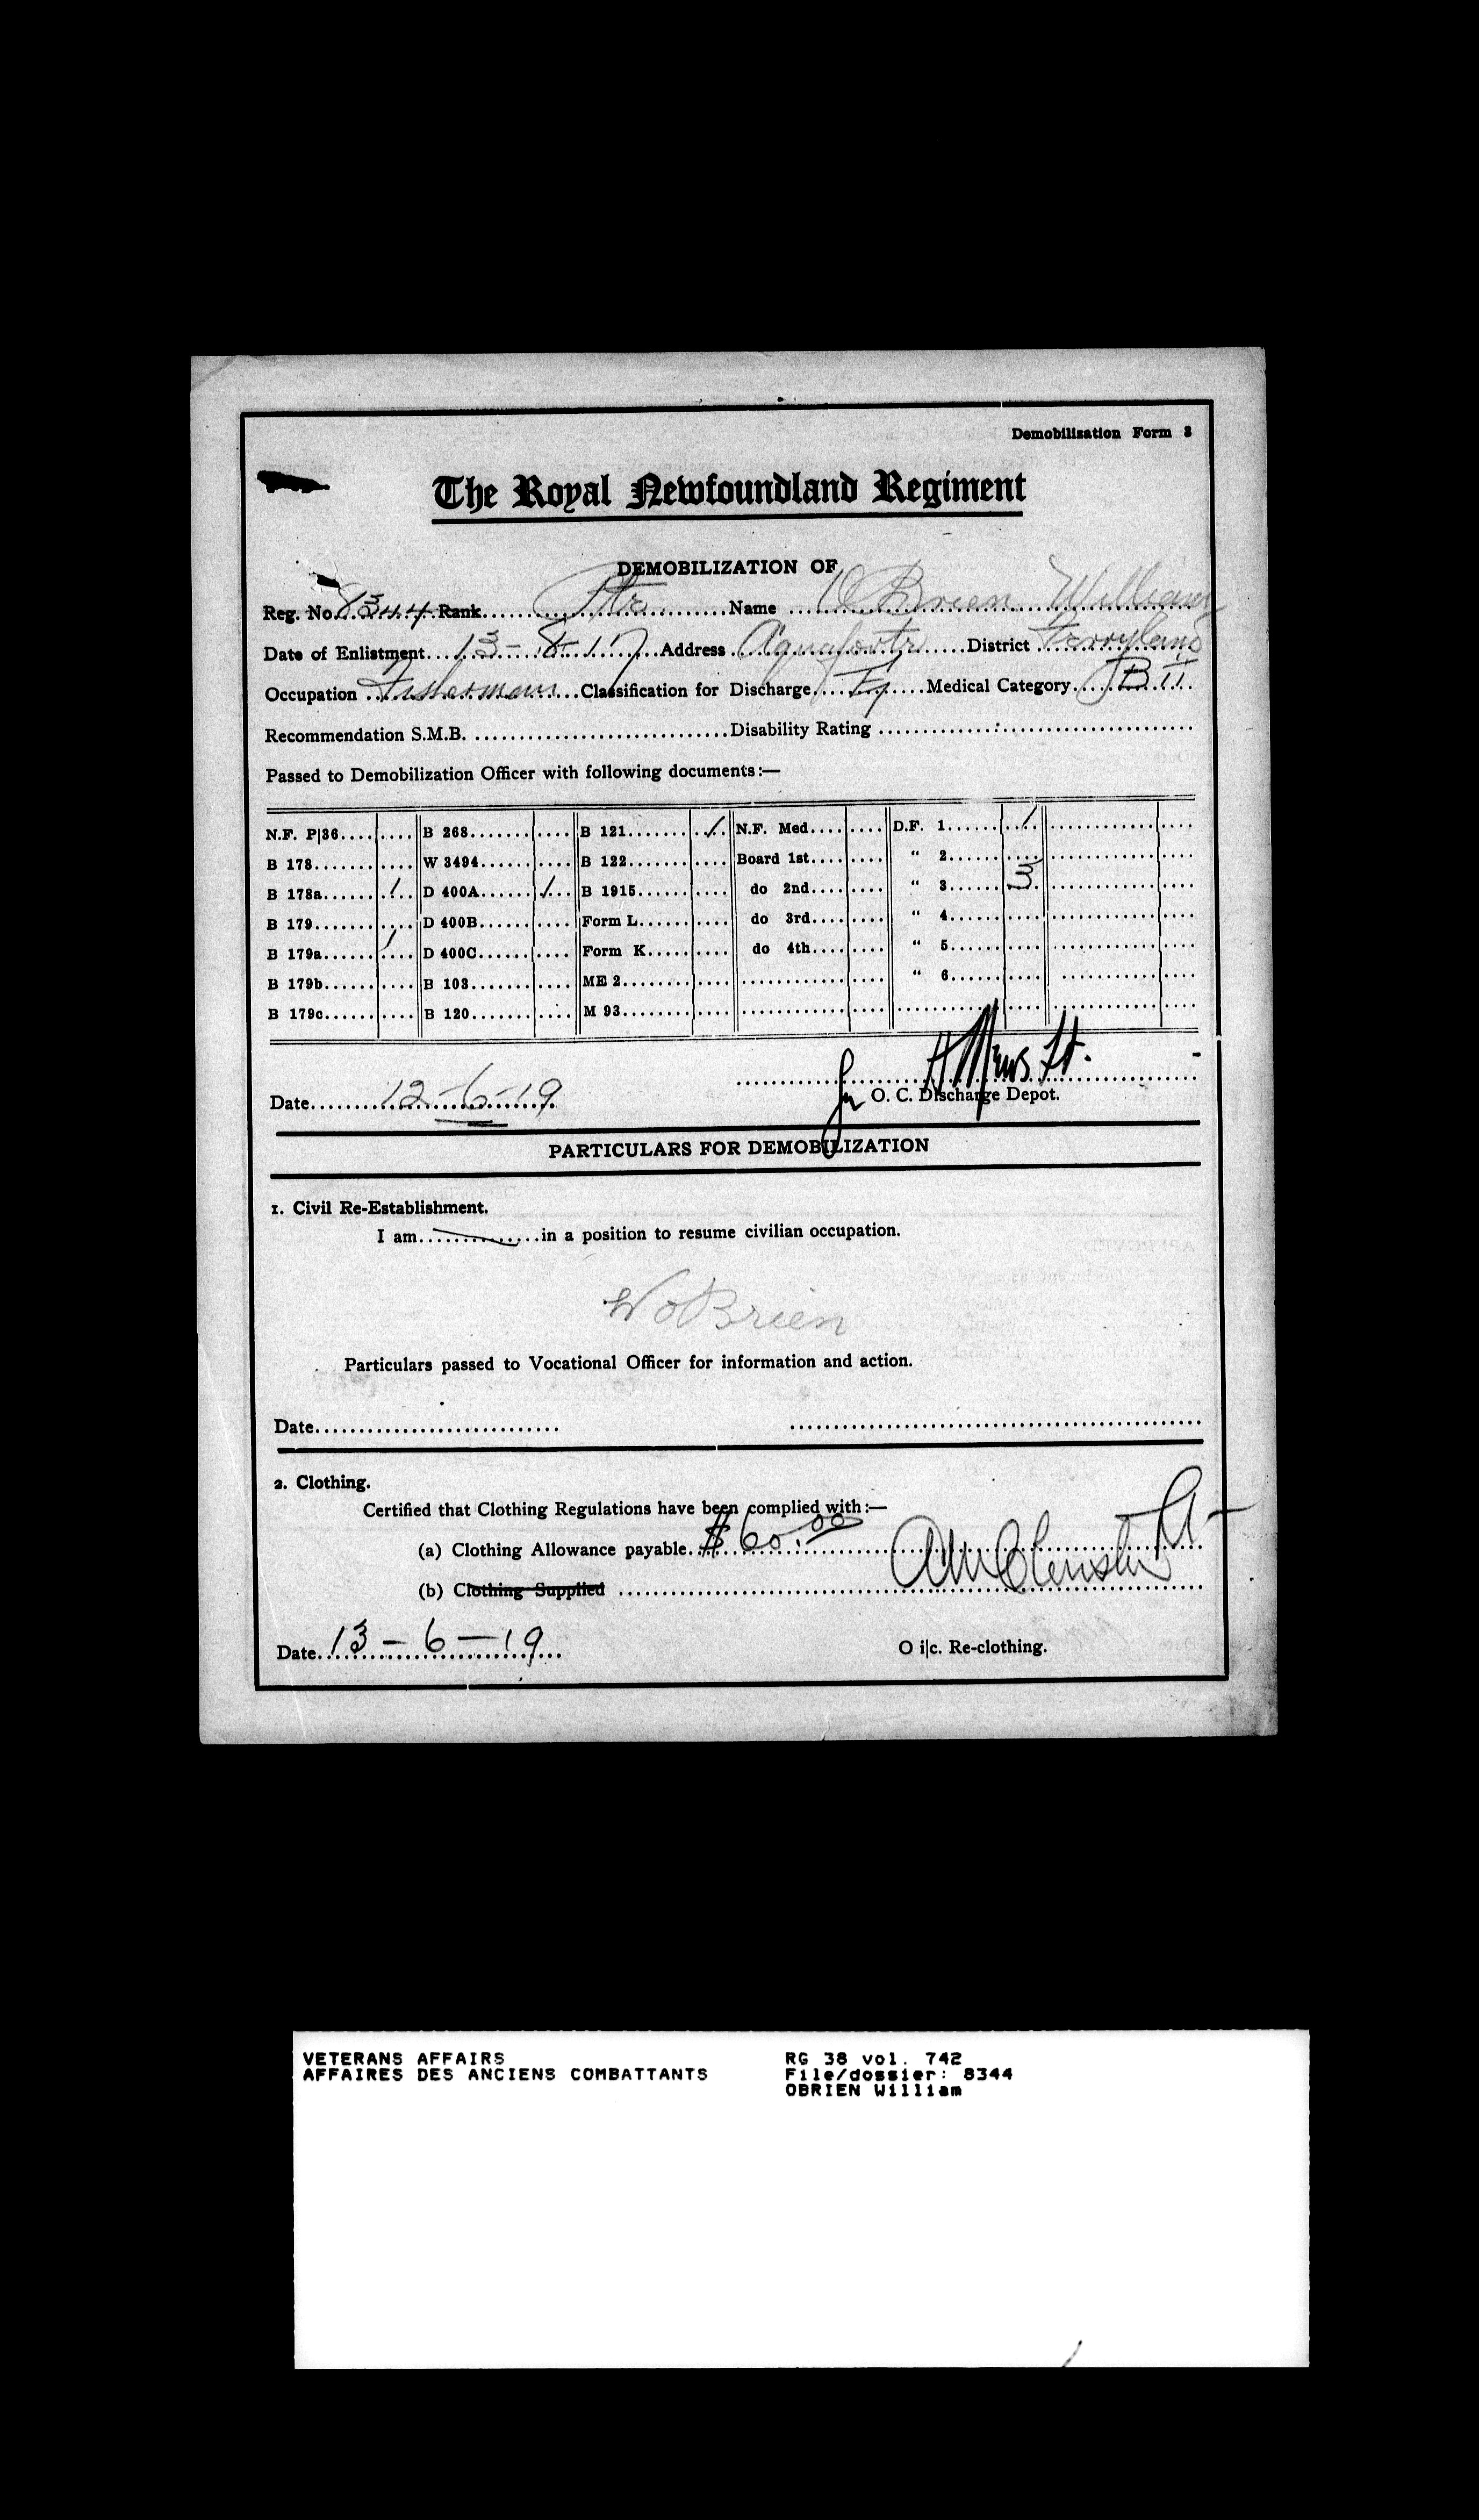 Demobilization Form 3
The Royal Newfoundland Regiment
DEMOBILIZATION OF
Reg. No. 8344 Rank Pte. Name O'Brien William
Date of Enlistment 13-8-17 Address Aquaforte District Ferryland
Occupation Fisherman Classification for Discharge Medical Category B II
Recommendation S.M.B. Disability Rating
Passed to Demobilization Officer with following documents:—
N.F. P|36 B 268 B 121 ✓ N.F. Med. D.F. 1 /
B 178 W 3494 B 122 Board 1st " 2
B 178a / D 400A / B 1915 do 2nd " 3 3
B 179 D 400B Form L do 3rd " 4
B 179a / D 400C Form K do 4th " 5
B 179b B 103 ME 2 " 6
B 179c B 120 M 93
Date 12-6-19 O. C. Discharge Depot.
PARTICULARS FOR DEMOBILIZATION
1. Civil Re-Establishment.
I am in a position to resume civilian occupation.
W O Brien
Particulars passed to Vocational Officer for information and action.
Date
2. Clothing.
Certified that Clothing Regulations have been complied with:—
(a) Clothing Allowance payable $60.00
(b) Clothing Supplied
Date 13-6-19 O i|c. Re-clothing.
VETERANS AFFAIRS RG 38 vol. 742
AFFAIRES DES ANCIENS COMBATTANTS File/dossier: 8344
OBRIEN William